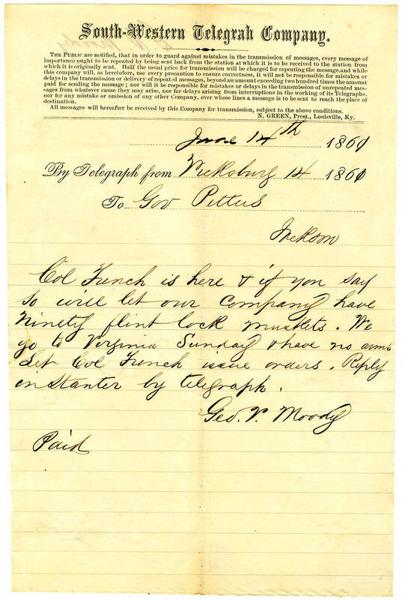 South-Western Telegrah Company.
THE PUBLIC are notified, that in order to guard against mistakes in the transmission of messages, every message of
importance ought to be repeated by being sent back from the station at which it is to be received to the station from
which it is originally sent. Half the usual price for transmission will be charged for repeating the message, and while
this company will, as heretofore, use every precaution to ensure correctness, it will not be responsible for mistakes or
delays in the transmission or delivery of repeated messages, beyond an amount exceeding two hundred times the amount
paid for sending the message; nor will it be responsible for mistakes or delays in the transmission of unrepeated messages
from whatever cause they may arise, nor for delays arising from interruptions in the working of its Telegraphs,
nor for any mistake or omission of any other Company, over whose lines a message is to be sent to reach the place of
destination.
All messages will hereafter be received by this Company for transmission, subject to the above conditions.
N. GREEN, Prest., Louisville, Ky.
June 14th 1861
By Telegraph from Vicksburg 14 1861
To Gov Pettus
Jackson
Col French is here & if you say
so will let our company have
ninety flint lock muskets. We
go to Virginia Sunday & have no arms
Let Col French issue orders. Reply
instanter by telegraph.
Geo. V. Moody
Paid